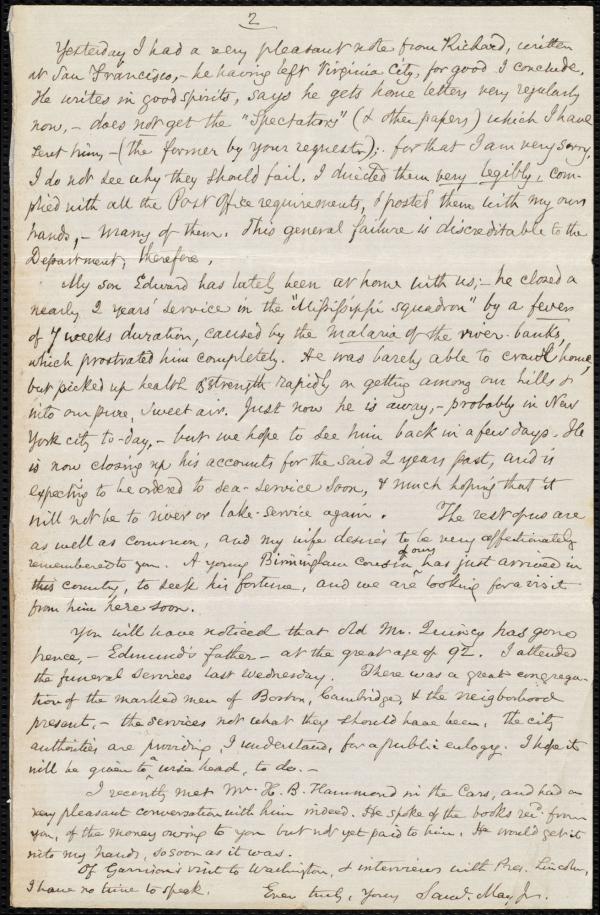 2
Yesterday I had a very pleasant note from Richard, written
at San Francisco, - he having left Virginia City, for good I conclude.
He writes in good spirits, says he gets home letters very regularly
now, - does not get the "Spectators" (& other papers) which I have
sent him, - (the former by your request); - for that I am very sorry.
I do not see why they should fail. I directed them very legibly, com-
plied with all the Post Office requirements, & posted them with my own
hands, - many of them. This general failure is discreditable to the
Department, therefore.
My son Edward has lately been at home with us; - he closed a
nearly 2 years' service in the "Mississippi squadron" by a fever
of 7 weeks duration, caused by the malaria of the river-banks,
which prostrated him completely. He was barely able to crawl home,
but picked up health & strength rapidly on getting among our hills &
into our pure, sweet air. Just now he is away, - probably in New
York city to-day, - but we hope to see him back in a few days. He
is now closing up his accounts for the said 2 years past, and is
expecting to be ordered to sea-service soon, & much hoping that it
will not be to river or lake-service again. The rest of us are
as well as common, and my wife desires to be very affectionately
remembered to you. A young Birmingham cousin of ours has just arrived in
this country, to seek his fortune, and we are looking for a visit
from him here soon.
You will have noticed that old Mr. Quincy has gone
hence, - Edmund's father - at the great age of 92. I attended
the funeral services last Wednesday. There was a great congrega-
tion of the marked men of Boston, Cambridge, & the neighborhood
present, - the services not what they should have been. The city
authorities are providing, I understand, for a public eulogy. I hope it
will be given to a wise head, to do. -
I recently met Mr. H. B. Hammond in the Cars, and had a
very pleasant conversation with him indeed. He spoke of the books recd. from
you, of the money owing to you but not yet paid to him. He would get it
into my hands, so soon as it was.
Of Garrison's visit to Washington, & interviews with Pres. Lincoln,
I have no time to speak. Ever truly, yours Saml. May Jr.